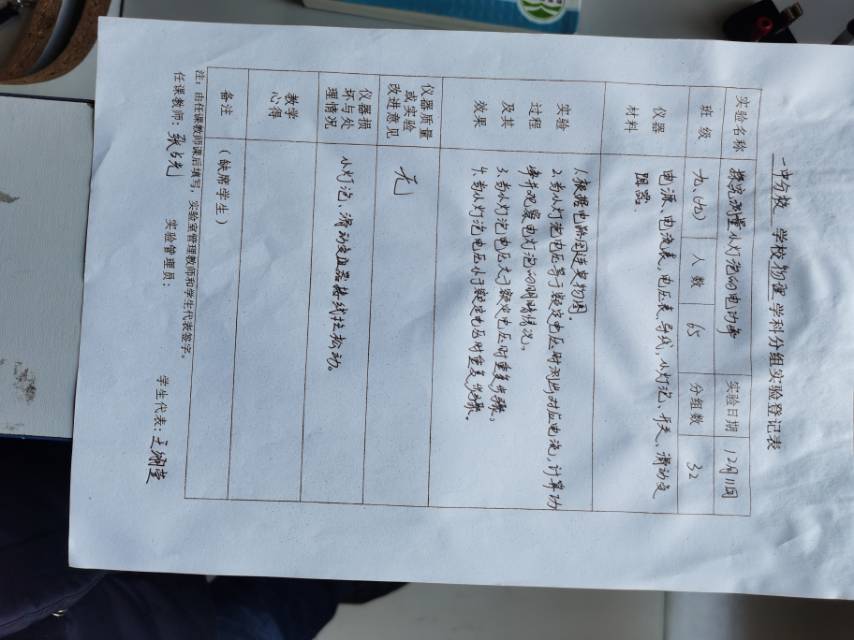 一中分校 学校物理学科分组实验登记表
实验名称 探究测量小灯泡的电功率 实验日期 12月11日
班级 九.(九) 人数 65 分组数 32
仪器材料 电源、电流表，电压表，导线，小灯泡、开关、滑动变
阻器
实验过程及其效果 1.根据电路图连实物图。
2.当小灯泡电压等于额定电压时测出对应电流，计算功
率并观察电灯泡的明暗情况。
3.当小灯泡电压大于额定电压时重复步骤。
4.当小灯泡电压小于额定电压时重复步骤。
仪器质量或实验改进意见 无
仪器损坏与处理情况 小灯泡、滑动变阻器接线柱松动。
教学心得
备注 （缺席学生）
注：由任课教师课后填写，实验室管理教师和学生代表签字。
任课教师： 实验管理员： 学生代表：